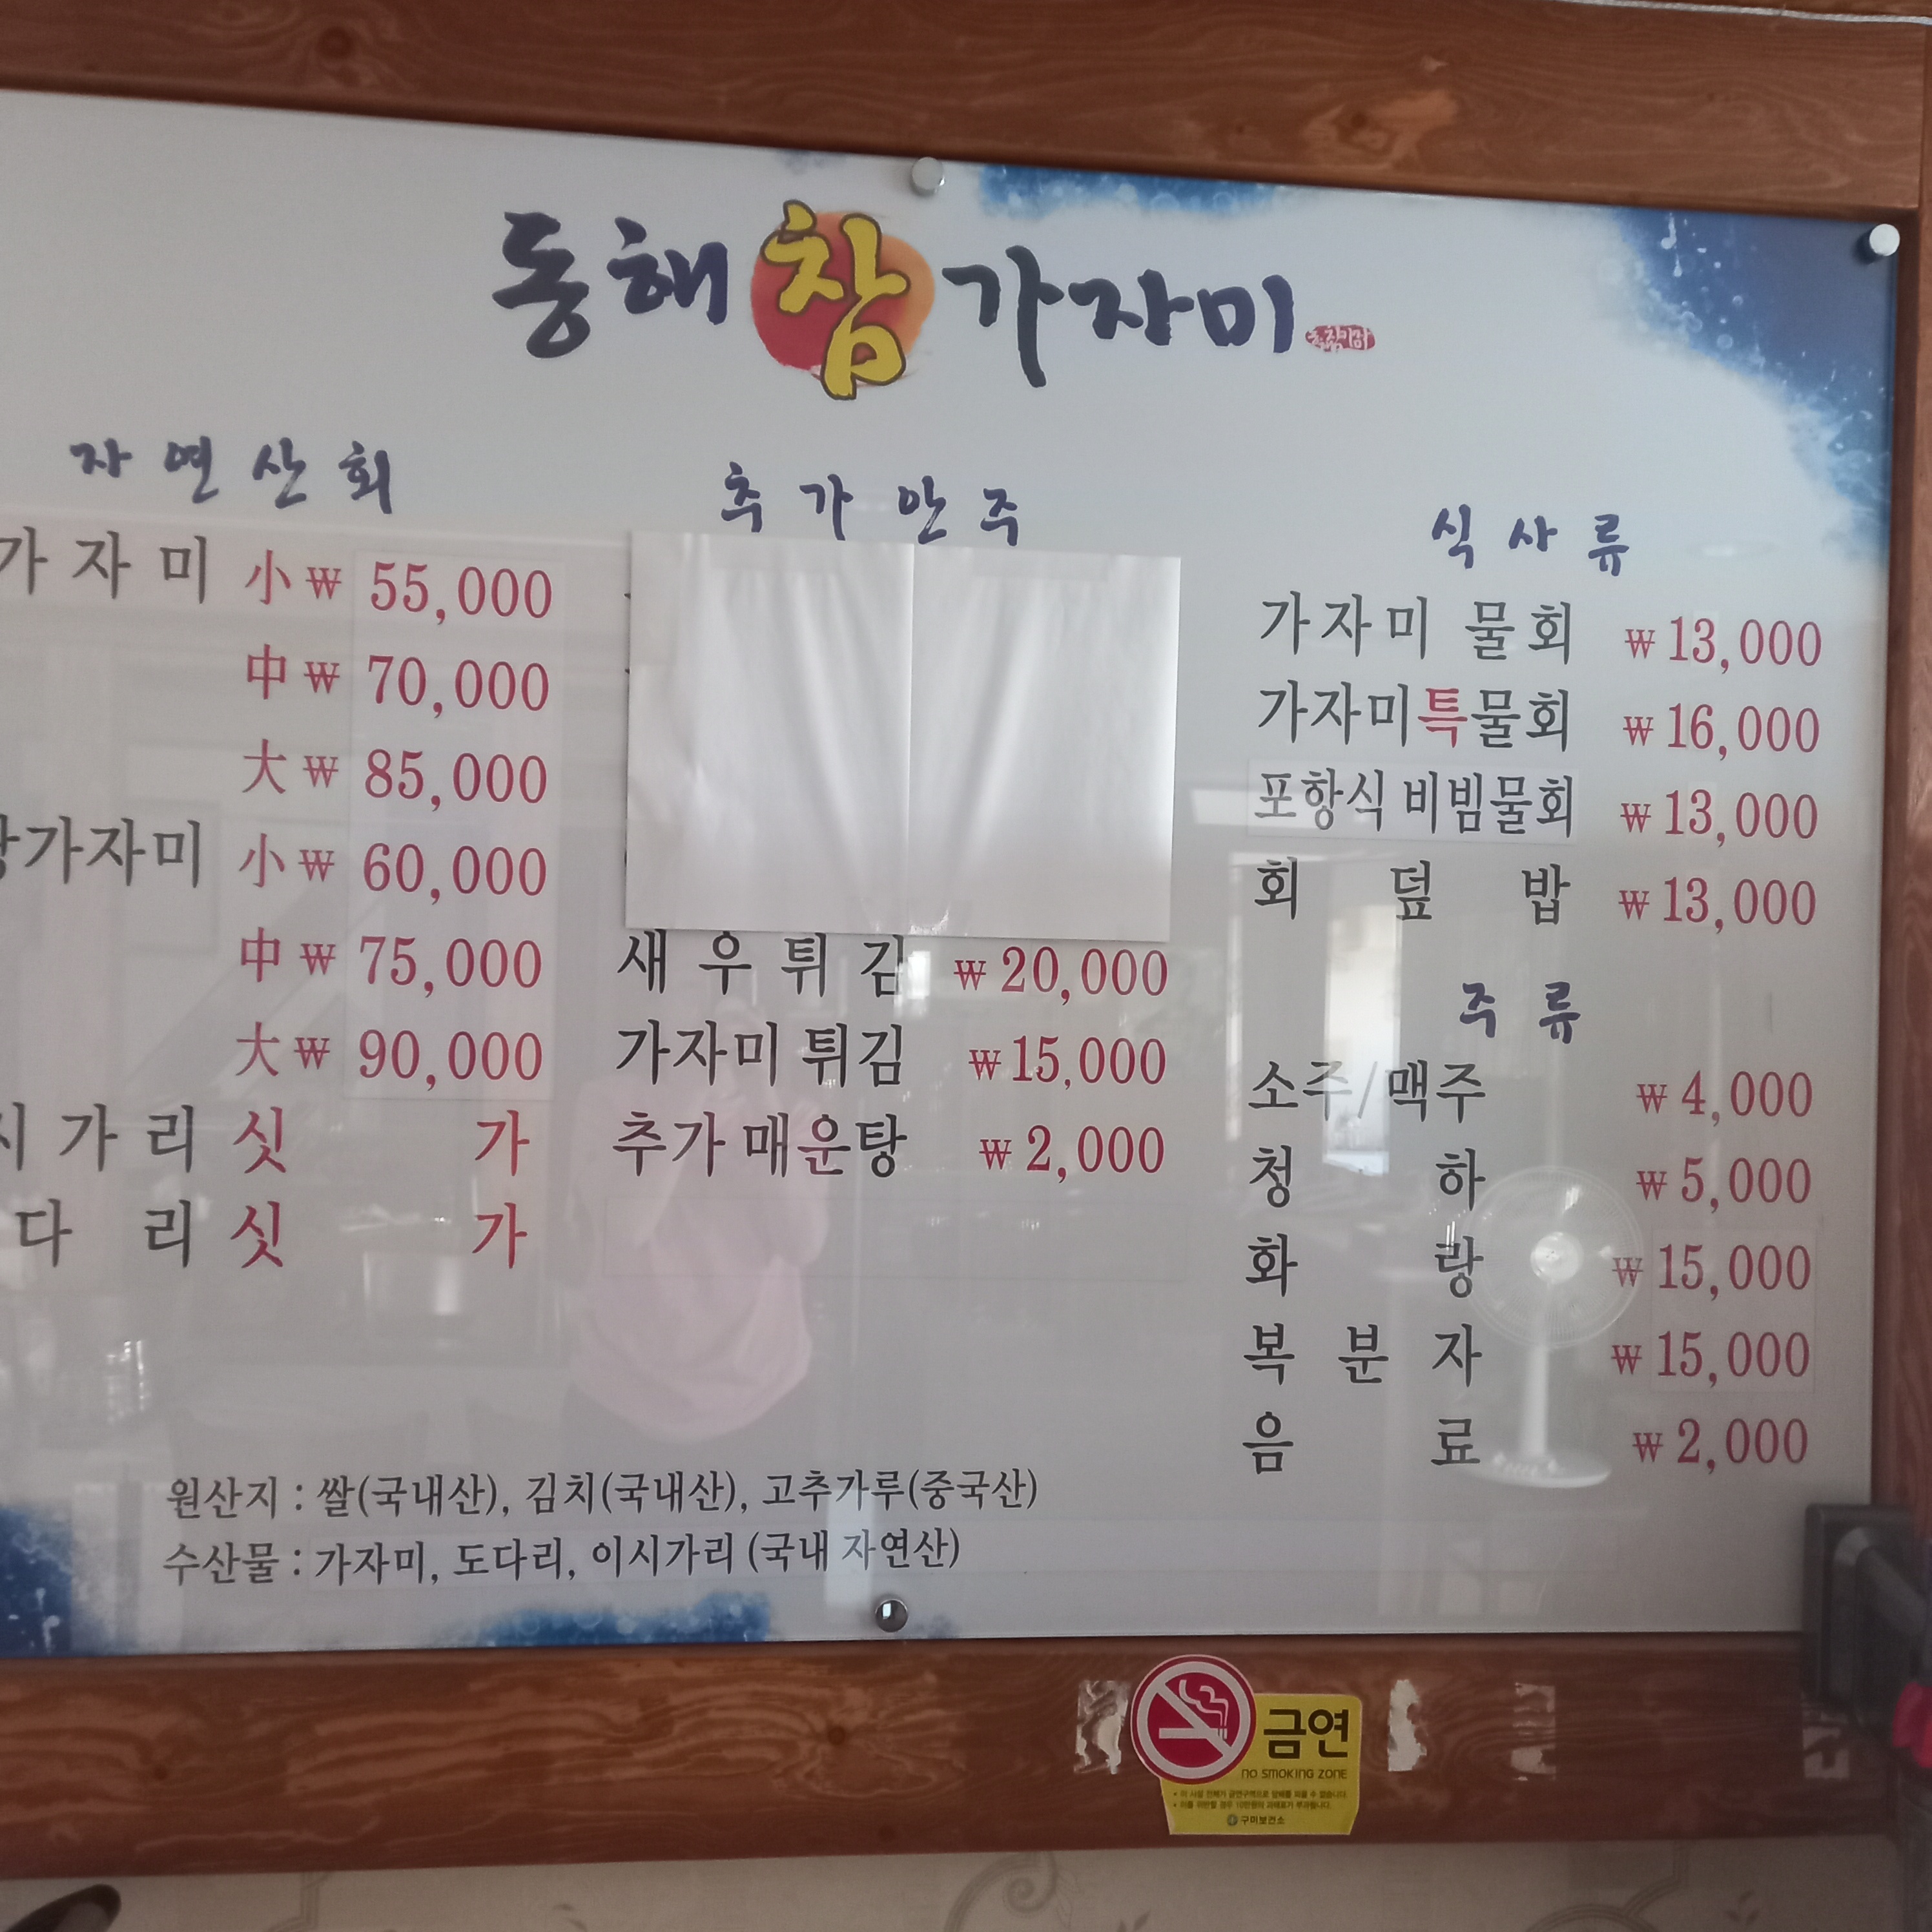 동해 참 가자미
자연산회
가자미 小 ₩ 55,000
中 ₩ 70,000
大 ₩ 85,000
가자미 小 ₩ 60,000
中 ₩ 75,000
大 ₩ 90,000
시가리 싯가
다리 싯가
추가안주
새우튀김 ₩ 20,000
가자미 튀김 ₩ 15,000
추가 매운탕 ₩ 2,000
식사류
가자미 물회 ₩ 13,000
가자미특물회 ₩ 16,000
포항식 비빔물회 ₩ 13,000
회덮밥 ₩ 13,000
주류
소주/맥주 ₩ 4,000
청하 ₩ 5,000
화랑 ₩ 15,000
복분자 ₩ 15,000
음료 ₩ 2,000
원산지 : 쌀(국내산), 김치(국내산), 고추가루(중국산)
수산물 : 가자미, 도다리, 이시가리 (국내 자연산)
금연
NO SMOKING ZONE
• 이 시설 전체가 금연구역으로 담배를 피울 수 없습니다.
• 이를 위반할 경우 10만원의 과태료가 부과됩니다.
구미보건소